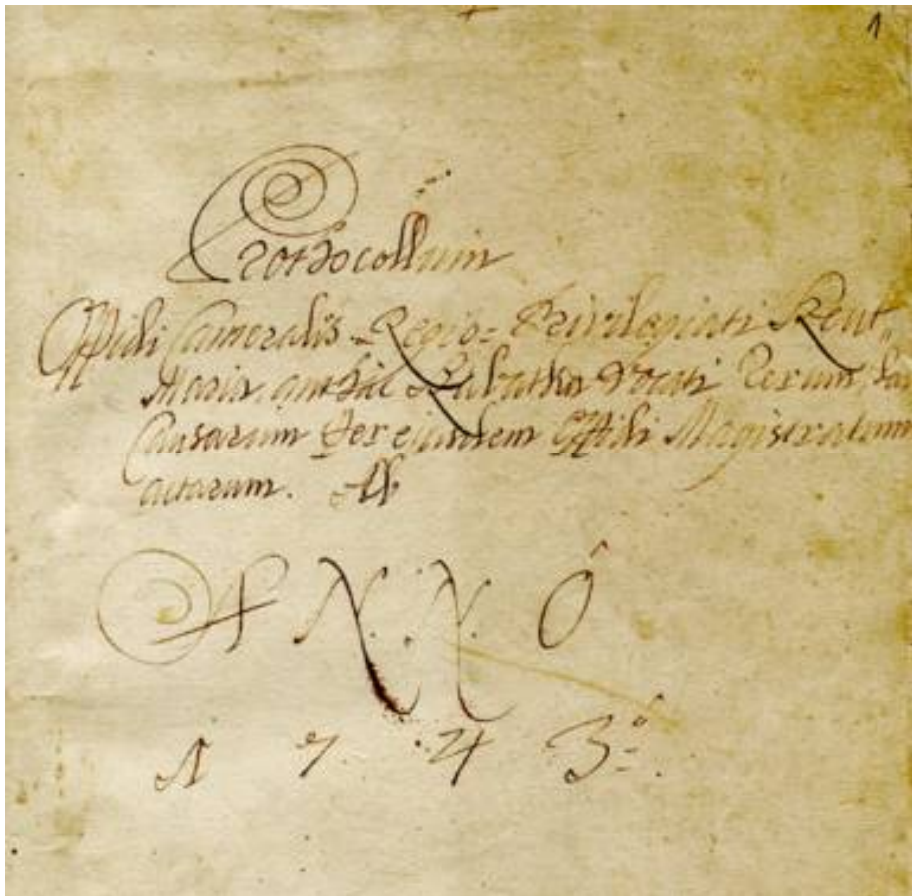 1
Prothocollum
Oppidi Cameralis Regio= Privilegiati Szent
Maria, anthac Szabatka Vocati Rerum, ac
Causarum Per ejusdem Oppidi Magistratum
actarum. Ab
ANNO
1743º.